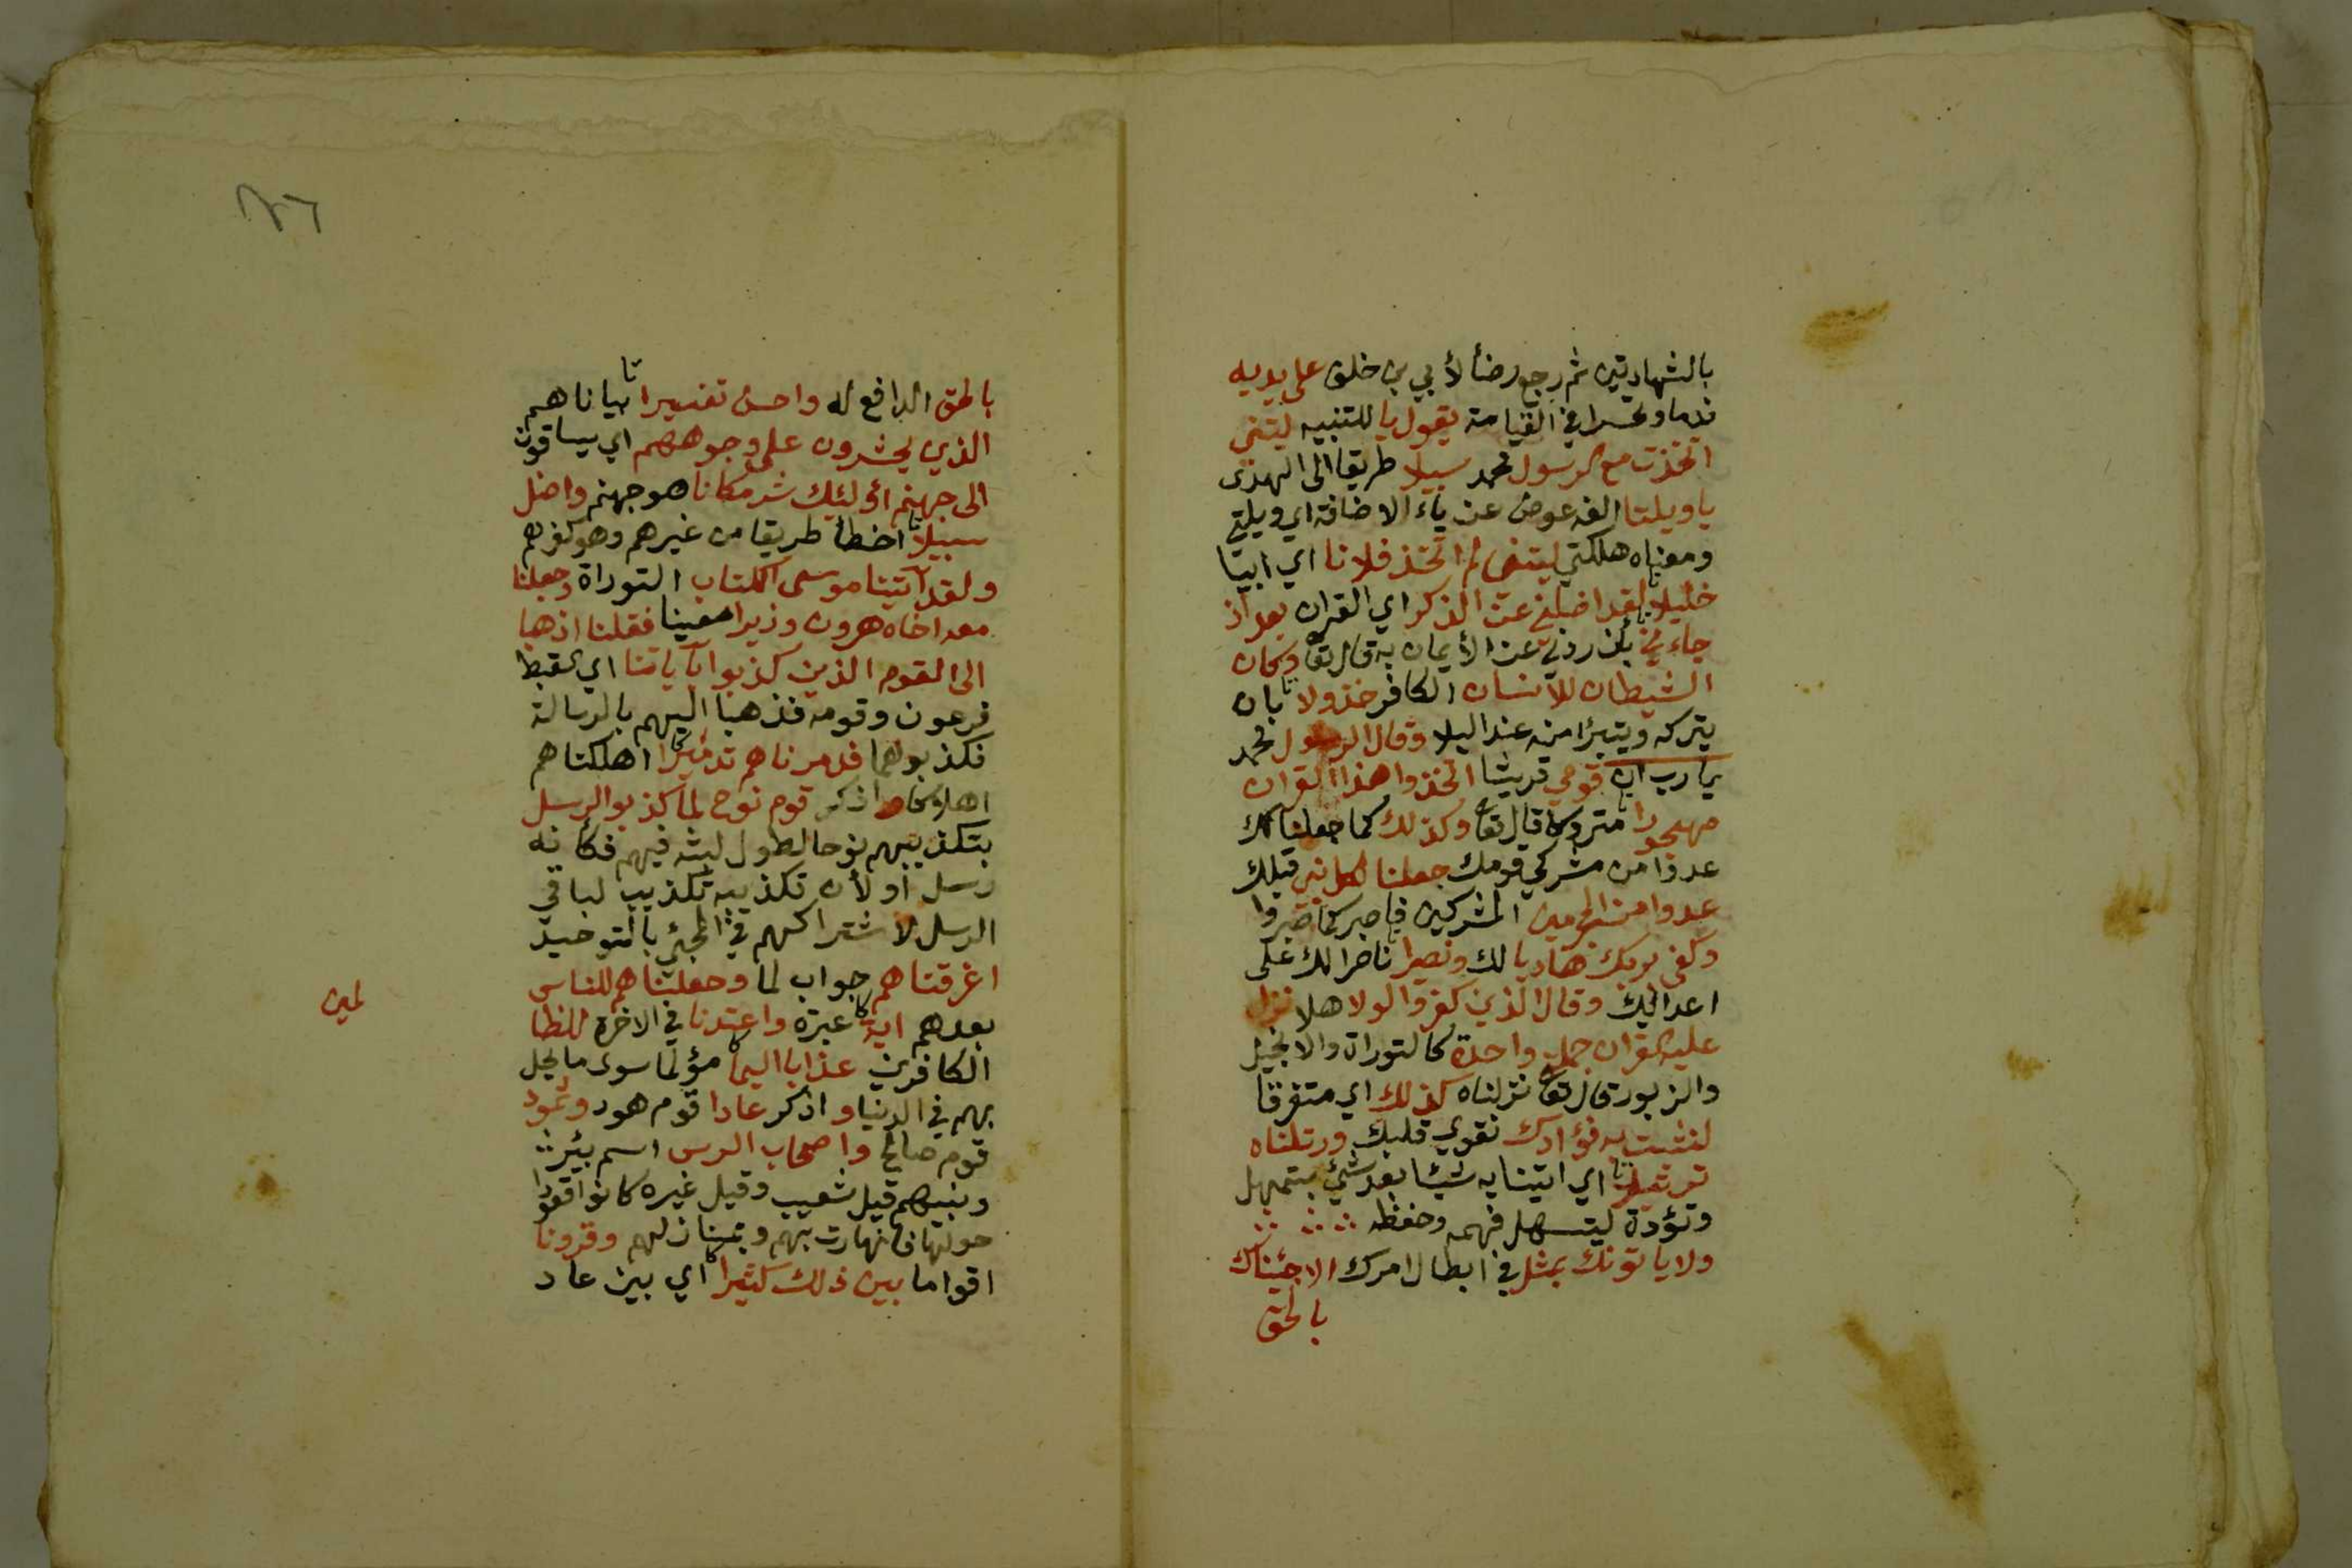 بالشهادتين ثم رجع رضأ لأبي بن خلق على يديه
ندما وتحسرا في القيامة يقول يا للتنبيه ليتني
اتخذت مع الرسول محمد سبيلا طريقا الى الهدى
يا ويلتا الفه عوض عن ياء الاضافة اي ويلتي
ومعناه هلكتي ليتني لم اتخذ فلانا اي ابيا
خليلا لقد اضلني عن الذكر اي القران بعد اذ
جاءني بأن ردني عن الأيمان به قال تعا وكان
الشيطان للانسان الكافر خذولا بان
يتركه ويتبرا منه عند البلا وقال الرسول محمد
يا رب ان قومي قريشا اتخذوا هذا القران
مهجورا متروكا قال تعا وكذلك كما جعلنا لك
عدوا من مشركي قومك جعلنا لكل نبي قبلك
عدوا من المجرمين المشركين فاصبر كما صبروا
وكفى بربك هاديا لك ونصيرا ناصرا لك على
اعدائيك وقال الذين كفروا لولا هلا نزل
عليه القران جملة واحدة كالتوراة والانجيل
والزبور قال تعا نزلناه كذلك اي متفرقا
لنثبت به فؤادك نقوي قلبك ورتلناه
ترتيلا اي اتينا به شيئا بعد شيئ بتمهل
وتؤدة ليتسهل فهمه وحفظه
ولا ياتونك بمثل في ابطال امرك الا جئناك
بالحق
٢٦
بالحق الدافع له واحسن تفسيرا بيانا هم
الذي يحشرون على وجوههم اي يساقون
الى جهنم اولئيك شر مكانا هو جهنم واضل
سبيلا اخطأ طريقا من غيرهم وهو كفرهم
ولقد آتينا موسى الكتاب التوراة وجعلنا
معه اخاه هرون وزيرا معينا فقلنا اذهبا
الى القوم الذين كذبوا بآياتنا اي القبط
فرعون وقومه فذهبا اليهم بالرسالة
فكذبوهما فدمرناهم تدميرا اهلكناهم
اهلاكا واذكر قوم نوح لما كذبوا الرسل
بتكذيبهم نوحا لطول لبثه فيهم فكأنه
رسل او لأن تكذيبه تكذيب لباقي
الرسل لاشتراكهم في المجيئ بالتوحيد
اغرقناهم جواب لما وجعلناهم للناس
بعدهم اية عبرة واعتدنا في الاخرة للظا
لمين
الكافرين عذابا اليما مؤلما سوى ما يحل
بهم في الدنيا واذكر عادا قوم هود وثمود
قوم صالح واصحاب الرس اسم بئر
ونبيهم قيل شعيب وقيل غيره كانوا قعودا
حولها فانهارت بهم وبمنازلهم وقرونا
اقواما بين ذلك كثيرا اي بين عاد